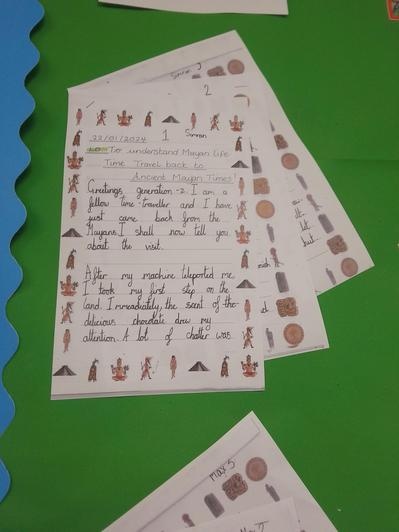 22/01/2024 1 Simran
LO: To understand Mayan life
Time Travel back to
Ancient Mayan Times!
Greetings generation -2. I am a
fellow time-traveller and I have
just came back from the
Mayans. I shall now tell you
about the visit.
After my machine teleported me,
I took my first step on the
land. Immediately, the scent of the
delicious chocolate drew my
attention. A lot of chatter was
2
Simran 3
but
max 5